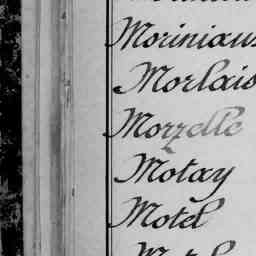 Moriniaus
Morlais
Morzelle
Motay
Motel